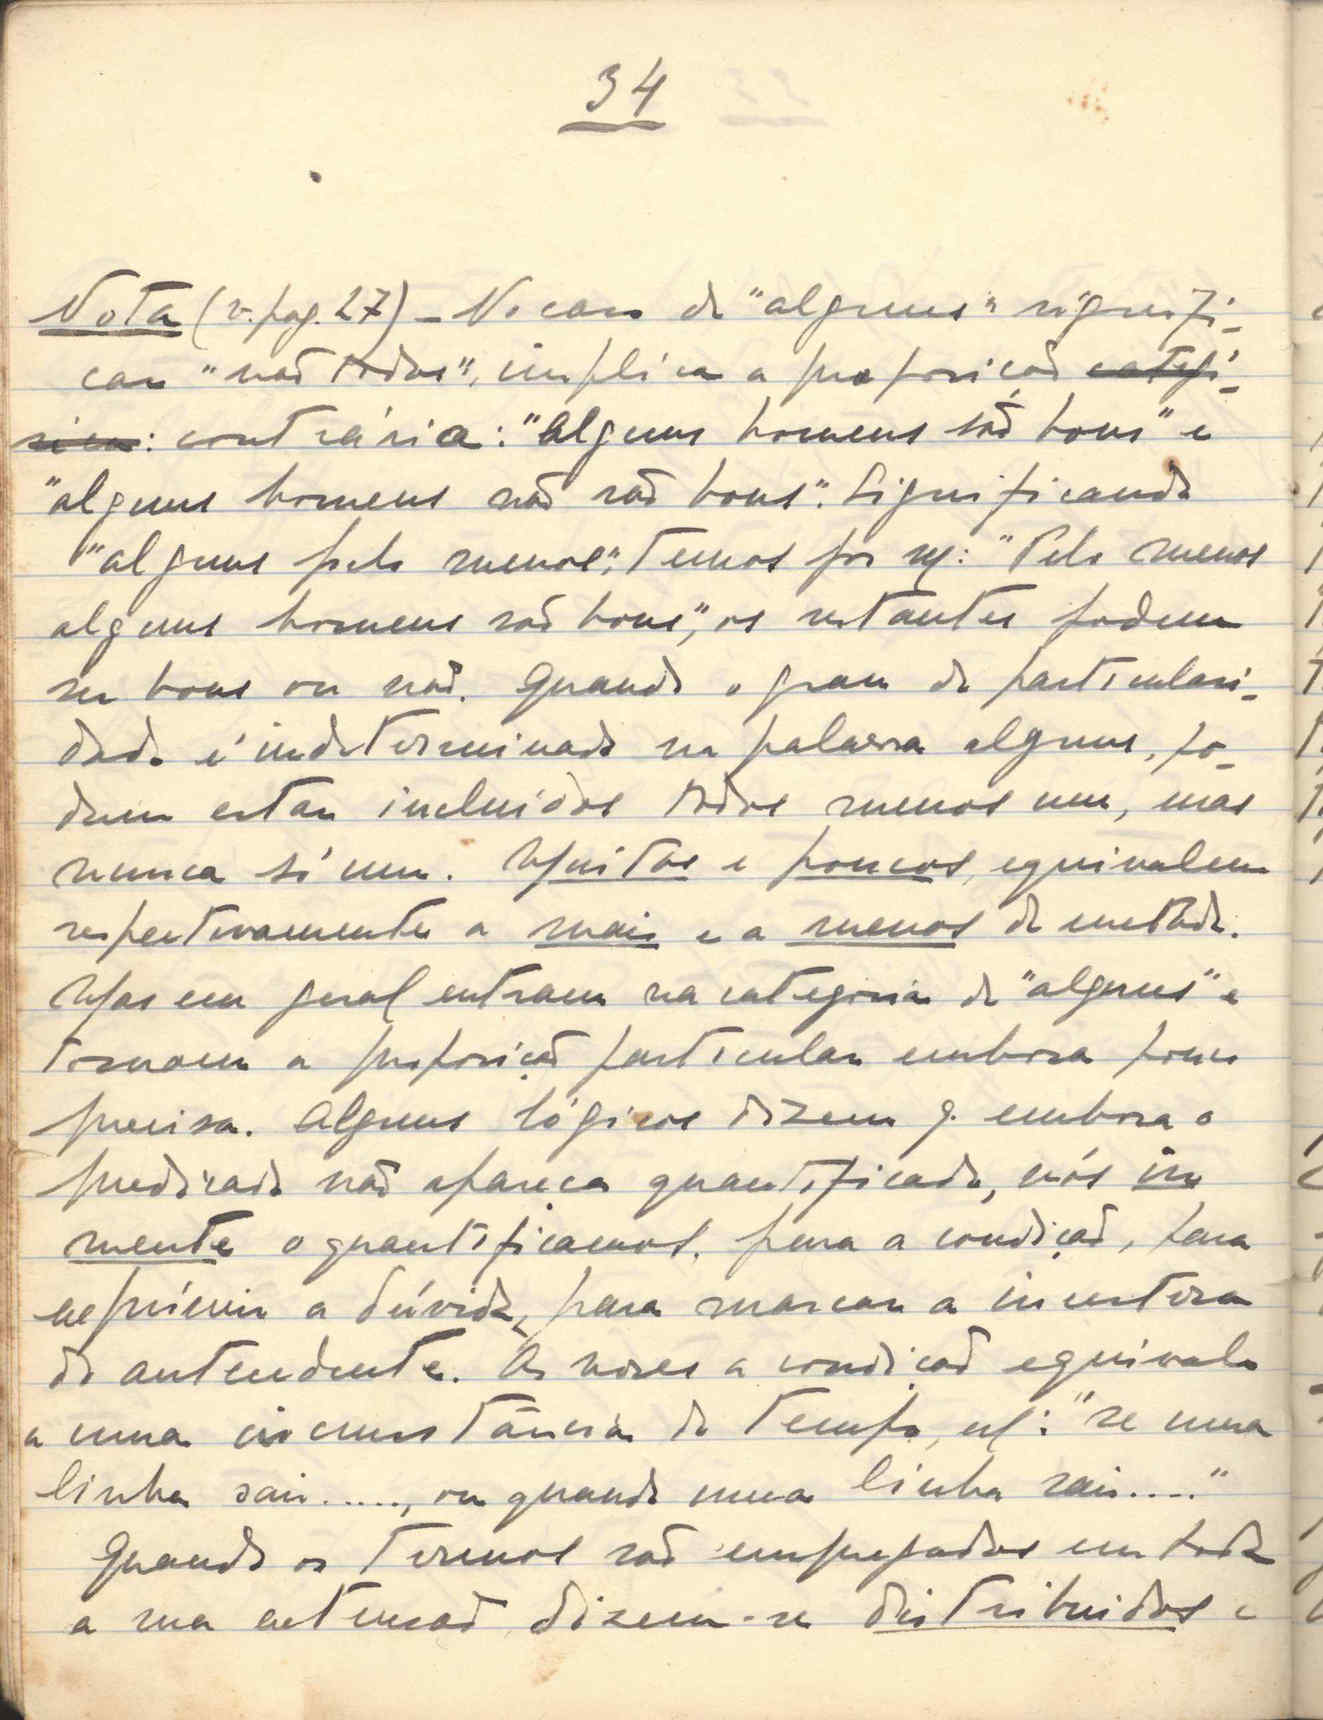 34
Nota (v. pag. 27) - No caso de "alguns" signifi-
car "não todos", implica a proposição categó-
rica: contrária: "Alguns homens são bons" e
"alguns homens não são bons". Significando
"alguns pelo menos", temos por ex: "Pelo menos
alguns homens são bons", os restantes podem
ser bons ou não. Quando o grau de particulari-
dade é indeterminado na palavra alguns, po-
dem estar incluidos todos menos um, mas
nunca só um. Muitos e poucos, equivalem
respectivamente a mais e a menos de metade.
Mas em geral entram na categoria de "alguns" e
tornam a proposição particular embora pouco
precisa. Alguns lógicos dizem q. embora o
predicado não apareça quantificado, nós in
mente o quantificamos. para a condição, para
exprimir a dúvida, para marcar a incerteza
do antecedente. Às vezes a condição equivale
a uma circunstância de tempo, ex: "se uma
linha cai....., ou quando uma linha cai....."
Quando os termos são empregados em toda
a sua extensão dizem-se distribuidos e